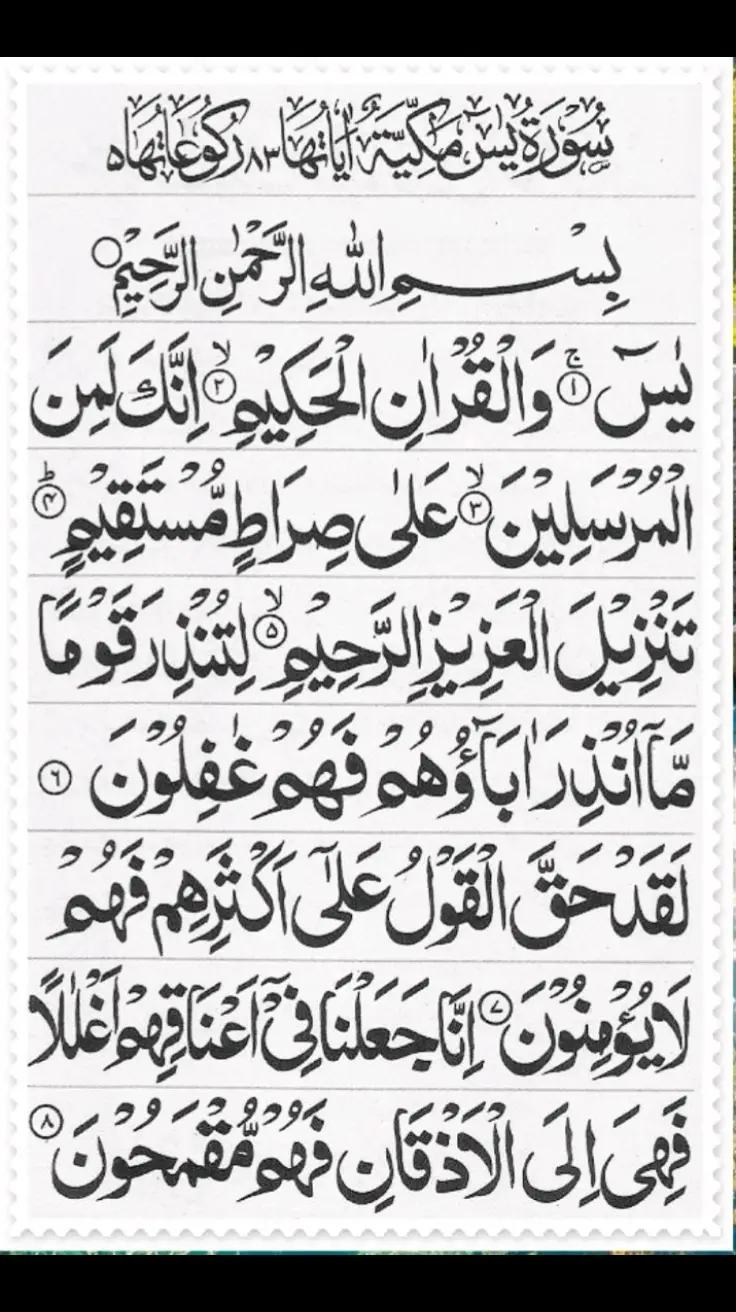 سُوْرَةُ يٰسٓ مَكِّيَّةٌ اٰيَاتُهَا ٨٣ رُكُوْعَاتُهَا ٥
بِسْمِ اللّٰهِ الرَّحْمٰنِ الرَّحِيْمِ ○
يٰسٓ ۚ﴿۱﴾ وَالْقُرْاٰنِ الْحَكِيْمِ ۙ﴿۲﴾ اِنَّكَ لَمِنَ
الْمُرْسَلِيْنَ ۙ﴿۳﴾ عَلٰى صِرَاطٍ مُّسْتَقِيْمٍ ؕ﴿۴﴾
تَنْزِيْلَ الْعَزِيْزِ الرَّحِيْمِ ۙ﴿۵﴾ لِتُنْذِرَ قَوْمًا
مَّاۤ اُنْذِرَ اٰبَآؤُهُمْ فَهُمْ غٰفِلُوْنَ ﴿۶﴾
لَقَدْ حَقَّ الْقَوْلُ عَلٰۤى اَكْثَرِهِمْ فَهُمْ
لَا يُؤْمِنُوْنَ ﴿۷﴾ اِنَّا جَعَلْنَا فِيْۤ اَعْنَاقِهِمْ اَغْلٰلًا
فَهِيَ اِلَى الْاَذْقَانِ فَهُمْ مُّقْمَحُوْنَ ﴿۸﴾